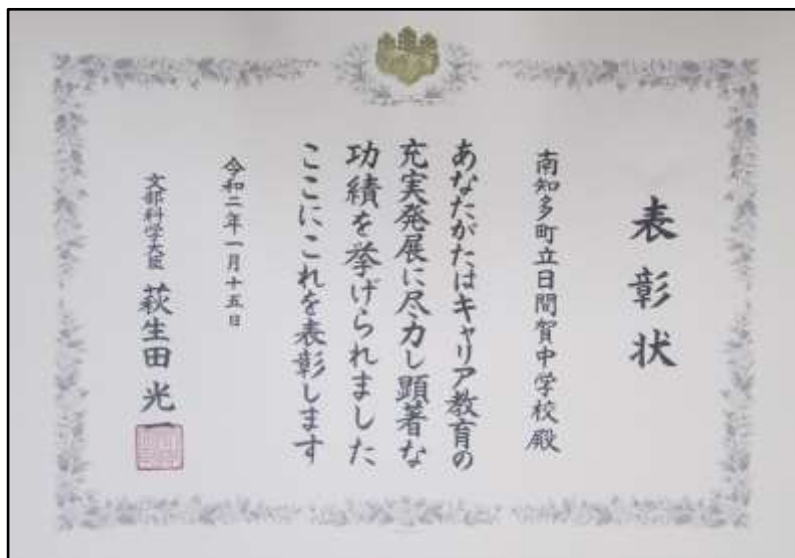 表彰状
南知多町立日間賀中学校殿
あなたがたはキャリア教育の
充実発展に尽力し顕著な
功績を挙げられました
ここにこれを表彰します
令和二年一月十五日
文部科学大臣 萩生田光一